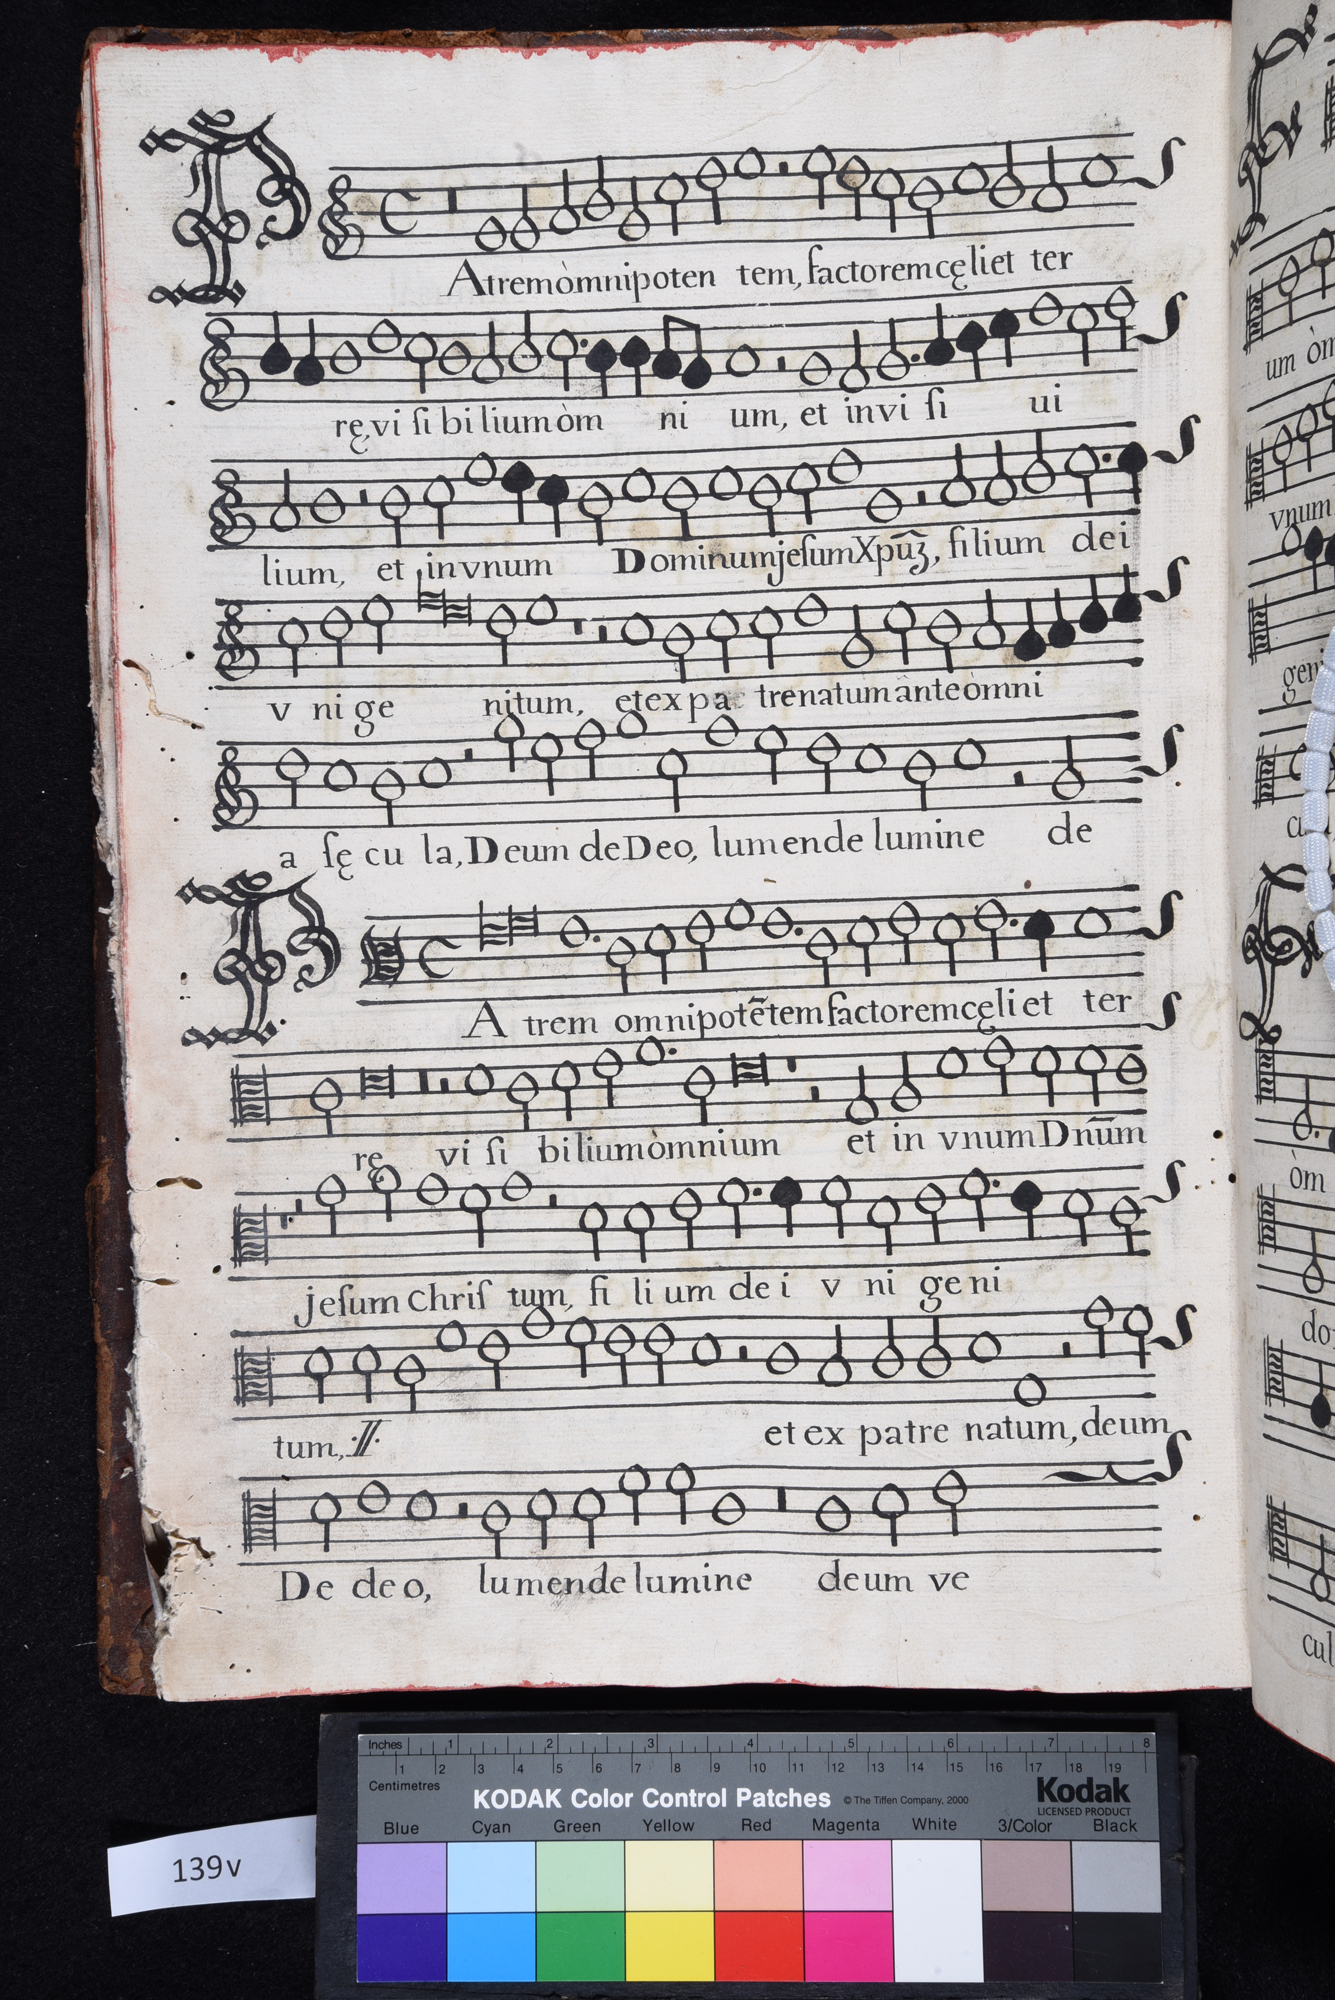 PAtremòmnipoten tem, factoremcęliet ter
rę,vi ſi biliumòm ni um, et invi ſi ui
lium, et invnum DominumjeſumXpūʒ, filium dei
v ni ge nitum, etexpa trenatumànteòmni
a ſę cu la, Deum deDeo, lumende lumine de
PA trem omnipotẽtemfactoremcęliet ter
rę vi ſi biliumòmnium et in vnum Dnūm
jeſum Chriſ tum, fi li um de i v ni geni
tum, :ij: et ex patre natum, deum
De deo, lumende lumine deum ve
um òm
vnum
geni
òm
do
cul
Inches 1 2 3 4 5 6 7 8
Centimetres 1 2 3 4 5 6 7 8 9 10 11 12 13 14 15 16 17 18 19
KODAK Color Control Patches © The Tiffen Company, 2000 Kodak
LICENSED PRODUCT
Blue Cyan Green Yellow Red Magenta White 3/Color Black
139v